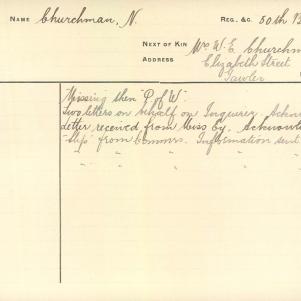 NAME Churchman, N. REG. &C. 50th
NEXT OF KIN Mr. W. E. Churchm
ADDRESS Elizabeth Street
Gawler
Missing then "P of W".
Two letters on behalf of Inquirer.
Letter received from Miss
slip" from Commrs. Information sent
" " " "